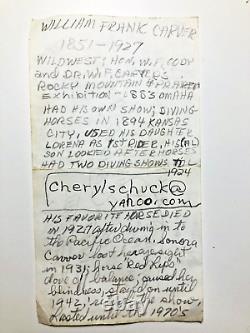 WILLIAM FRANK CARVER
1851-1927
WILDWEST; HON, W.F. CODY
and DR. W.F. CARVER'S
ROCKY MOUNTAIN & PRAIRIE
Exhibition - 1883 OMAHA
HAD HIS OWN SHOW; DIVING
HORSES IN 1894 KANSAS
CITY, USED HIS DAUGHTER
LORENA AS 1ST RIDER, HIS (AL)
SON LOOKED AFTER HORSES
HAD TWO DIVING SHOWS TIL
1924
cherylschuck@
yahoo.com
HIS FAVORITE HORSE DIED
in 1927 after diving in to
the Pacific Ocean, Sonora
Carver lost her eyesight
in 1931; horse Red Lips'
dove off balance, caused her
blindness, stayed on until
1942, the show
lasted until the 1970's